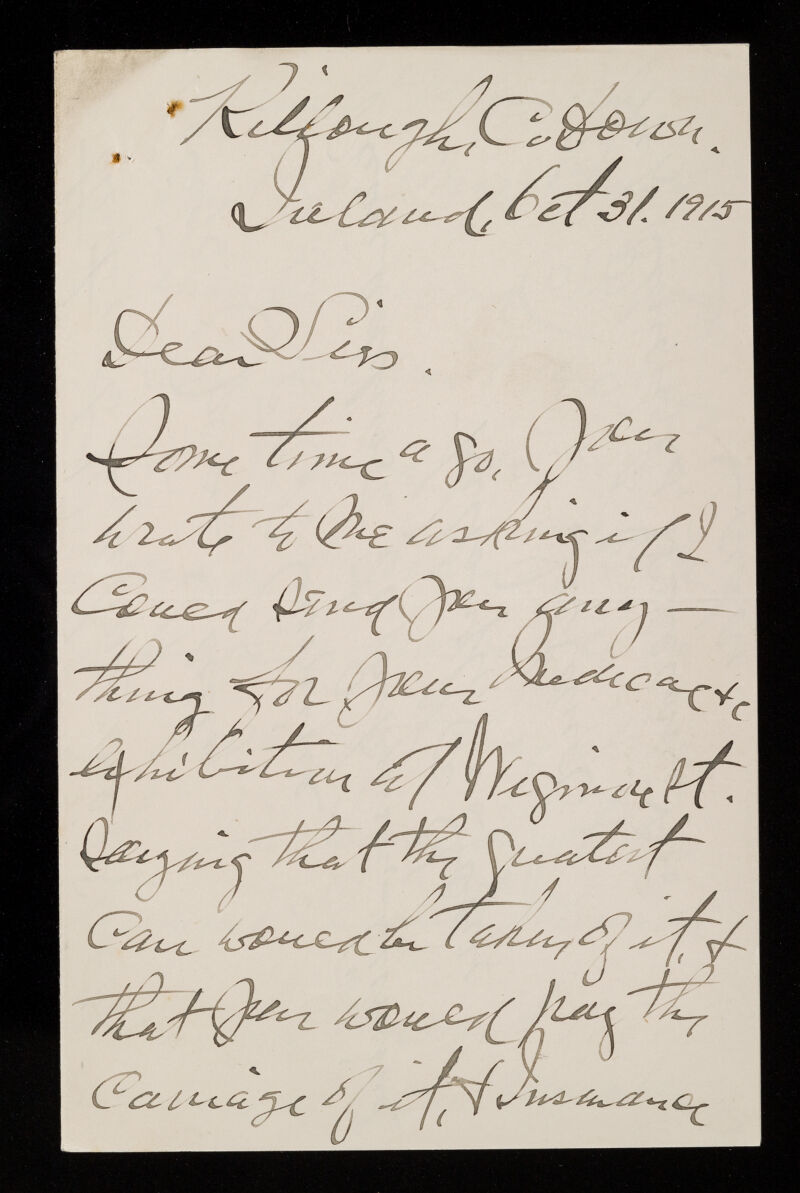 Killough, Co Down.
Ireland, Oct 31. 1915
Dear Sirs.
Some time ago, you
wrote to me asking if I
could send you any —
thing for your Medical &c
exhibition at Wigmore St.
saying that the greatest
care would be taken of it, &
that you would pay the
carriage of it, & Insurance